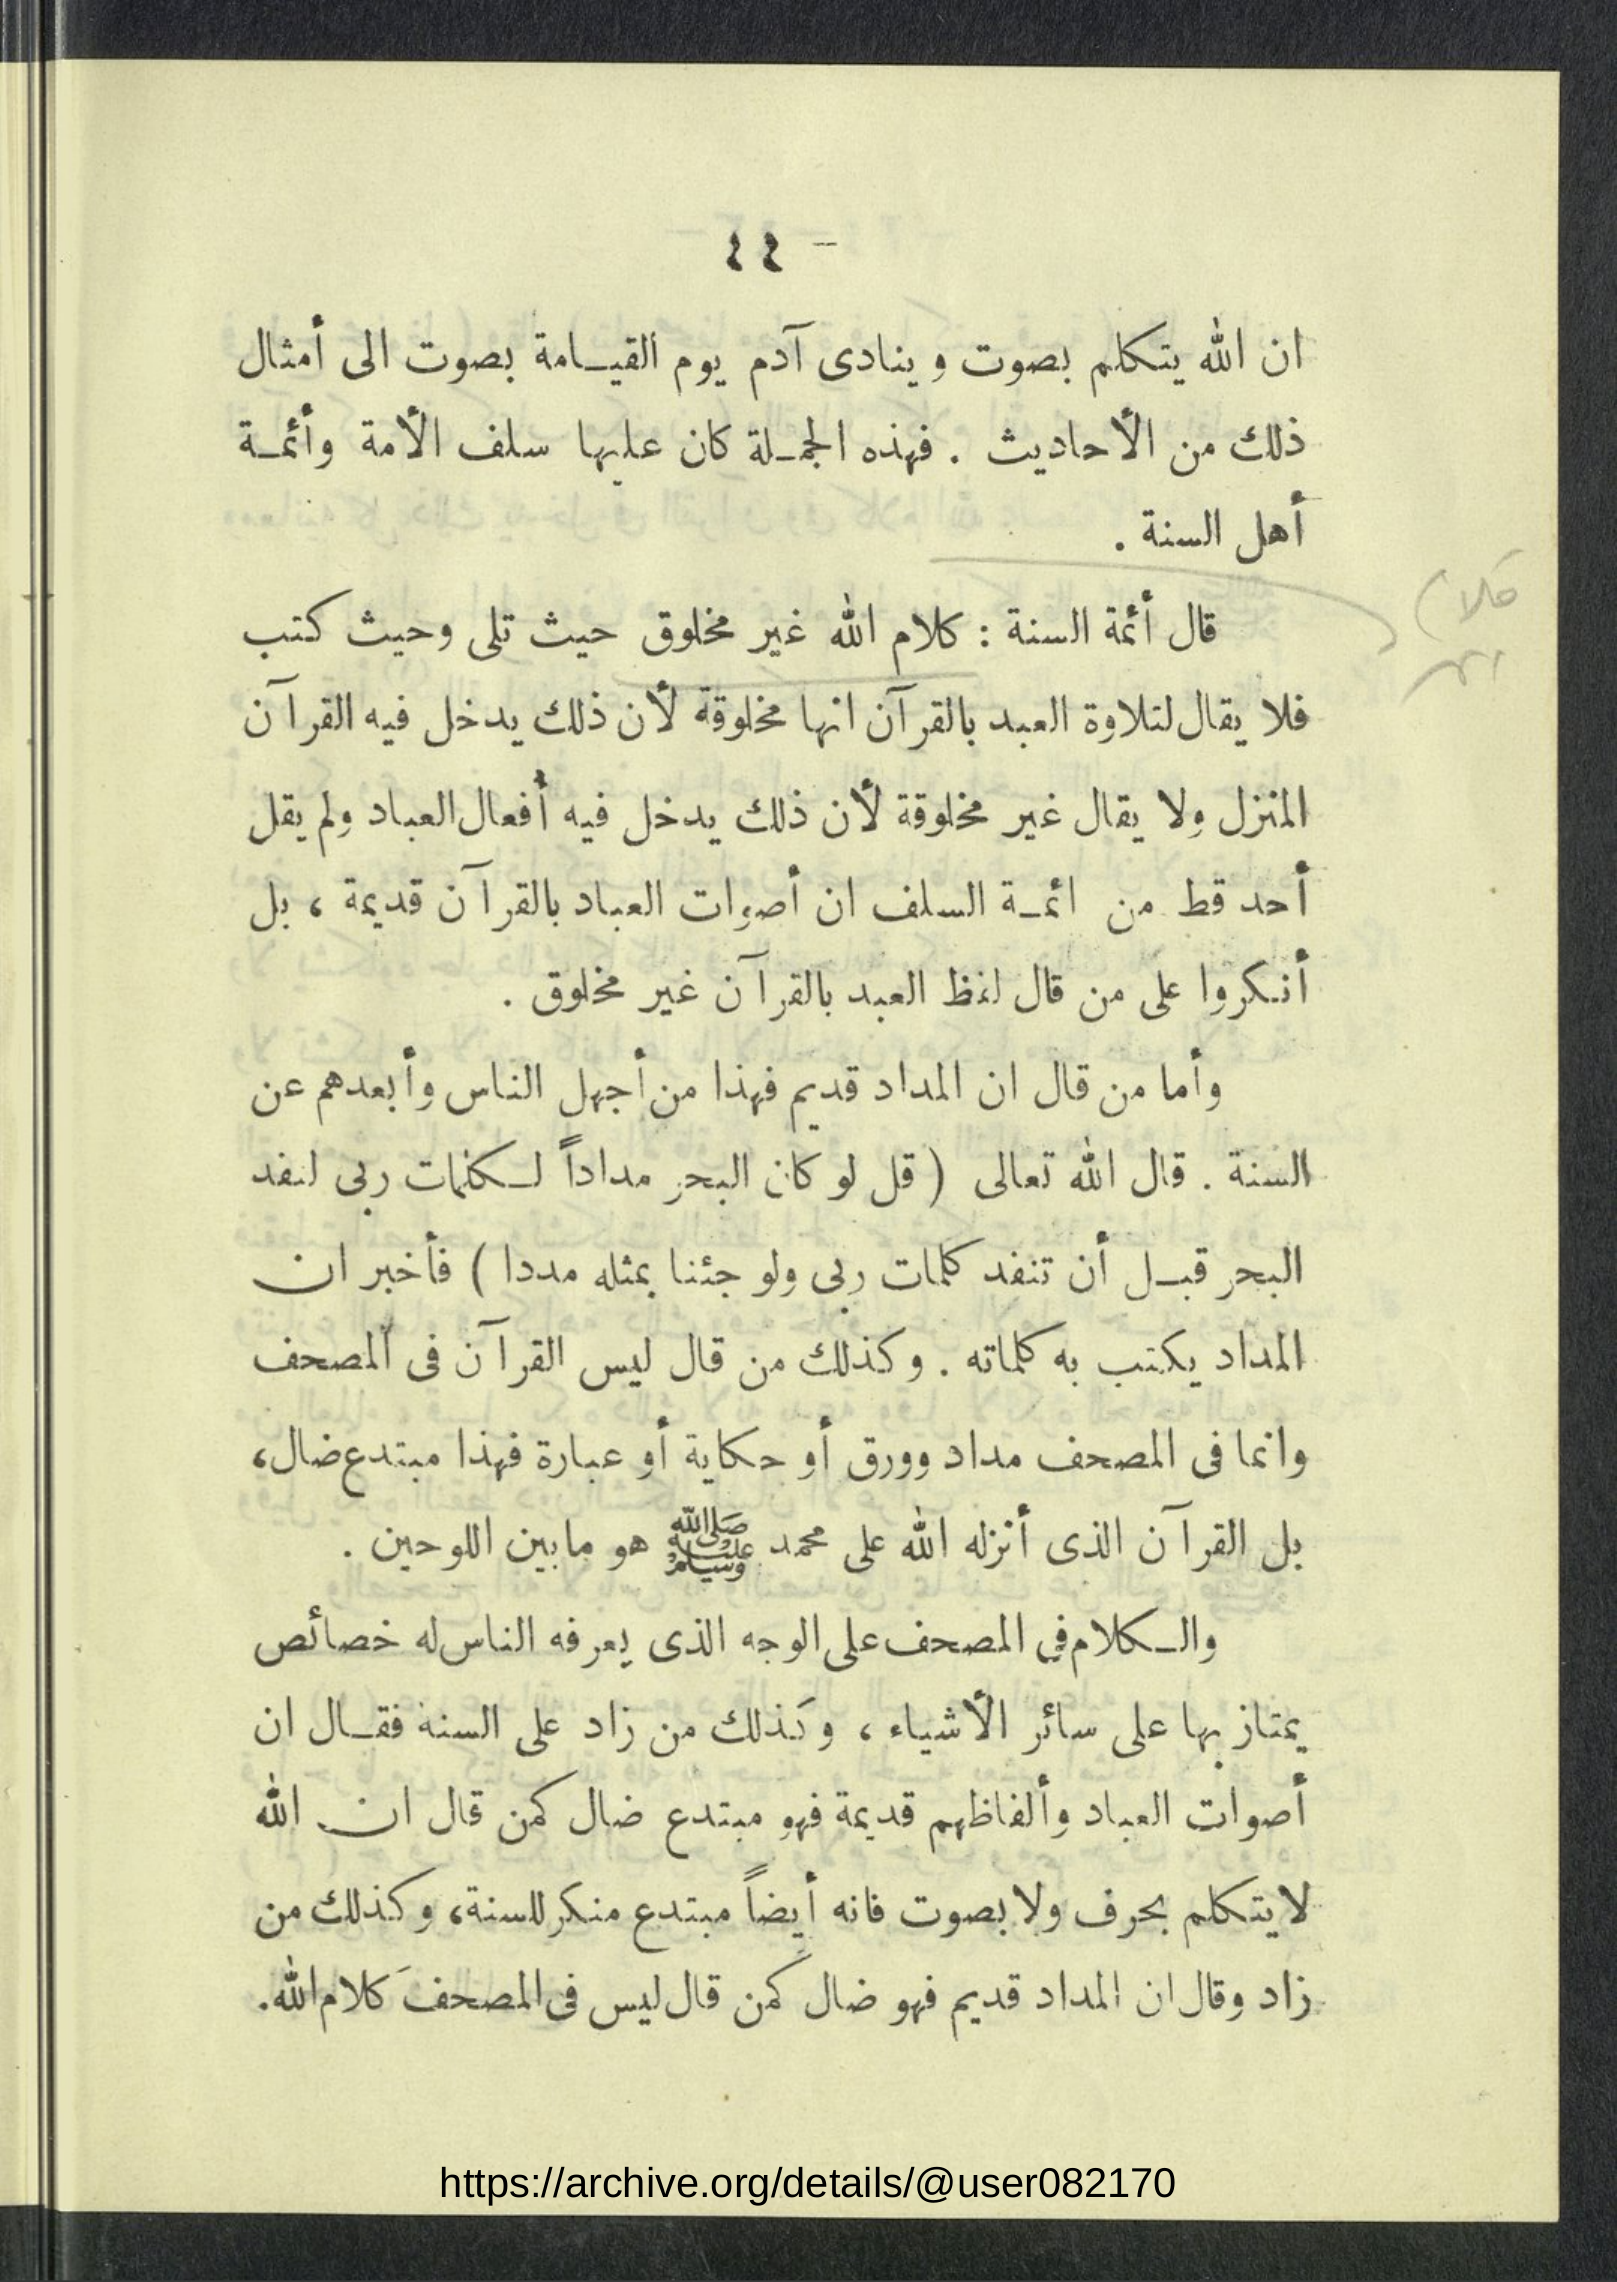 — ٤٤
ان الله يتكلم بصوت وينادى آدم يوم القيامة بصوت الى أمثال
ذلك من الأحاديث . فهذه الجملة كان عليها سلف الأمة وأئمة
أهل السنة .
قال أئمة السنة : كلام الله غير مخلوق حيث تلى وحيث كتب
فلا يقال لتلاوة العبد بالقرآن انها مخلوقة لأن ذلك يدخل فيه القرآن
المنزل ولا يقال غير مخلوقة لأن ذلك يدخل فيه أفعال العباد ولم يقل
أحد قط من ائمة السلف ان أصوات العباد بالقرآن قديمة ، بل
أنكروا على من قال لفظ العبد بالقرآن غير مخلوق .
وأما من قال ان المداد قديم فهذا من أجهل الناس وأبعدهم عن
السنة . قال الله تعالى ( قل لو كان البحر مداداً لكلمات ربى لنفد
البحر قبل أن تنفد كلمات ربى ولو جئنا بمثله مددا ) فأخبر ان
المداد يكتب به كلماته . وكذلك من قال ليس القرآن فى المصحف
وانما فى المصحف مداد وورق أو حكاية أو عبارة فهذا مبتدع ضال ،
بل القرآن الذى أنزله الله على محمد ﷺ هو مابين اللوحين .
والكلام في المصحف على الوجه الذى يعرفه الناس له خصائص
يمتاز بها على سائر الأشياء ، وكذلك من زاد على السنة فقال ان
أصوات العباد وألفاظهم قديمة فهو مبتدع ضال كمن قال ان الله
لايتكلم بحرف ولا بصوت فانه أيضاً مبتدع منكر للسنة ، وكذلك من
زاد وقال ان المداد قديم فهو ضال كمن قال ليس فى المصحف كلام الله .
https://archive.org/details/@user082170